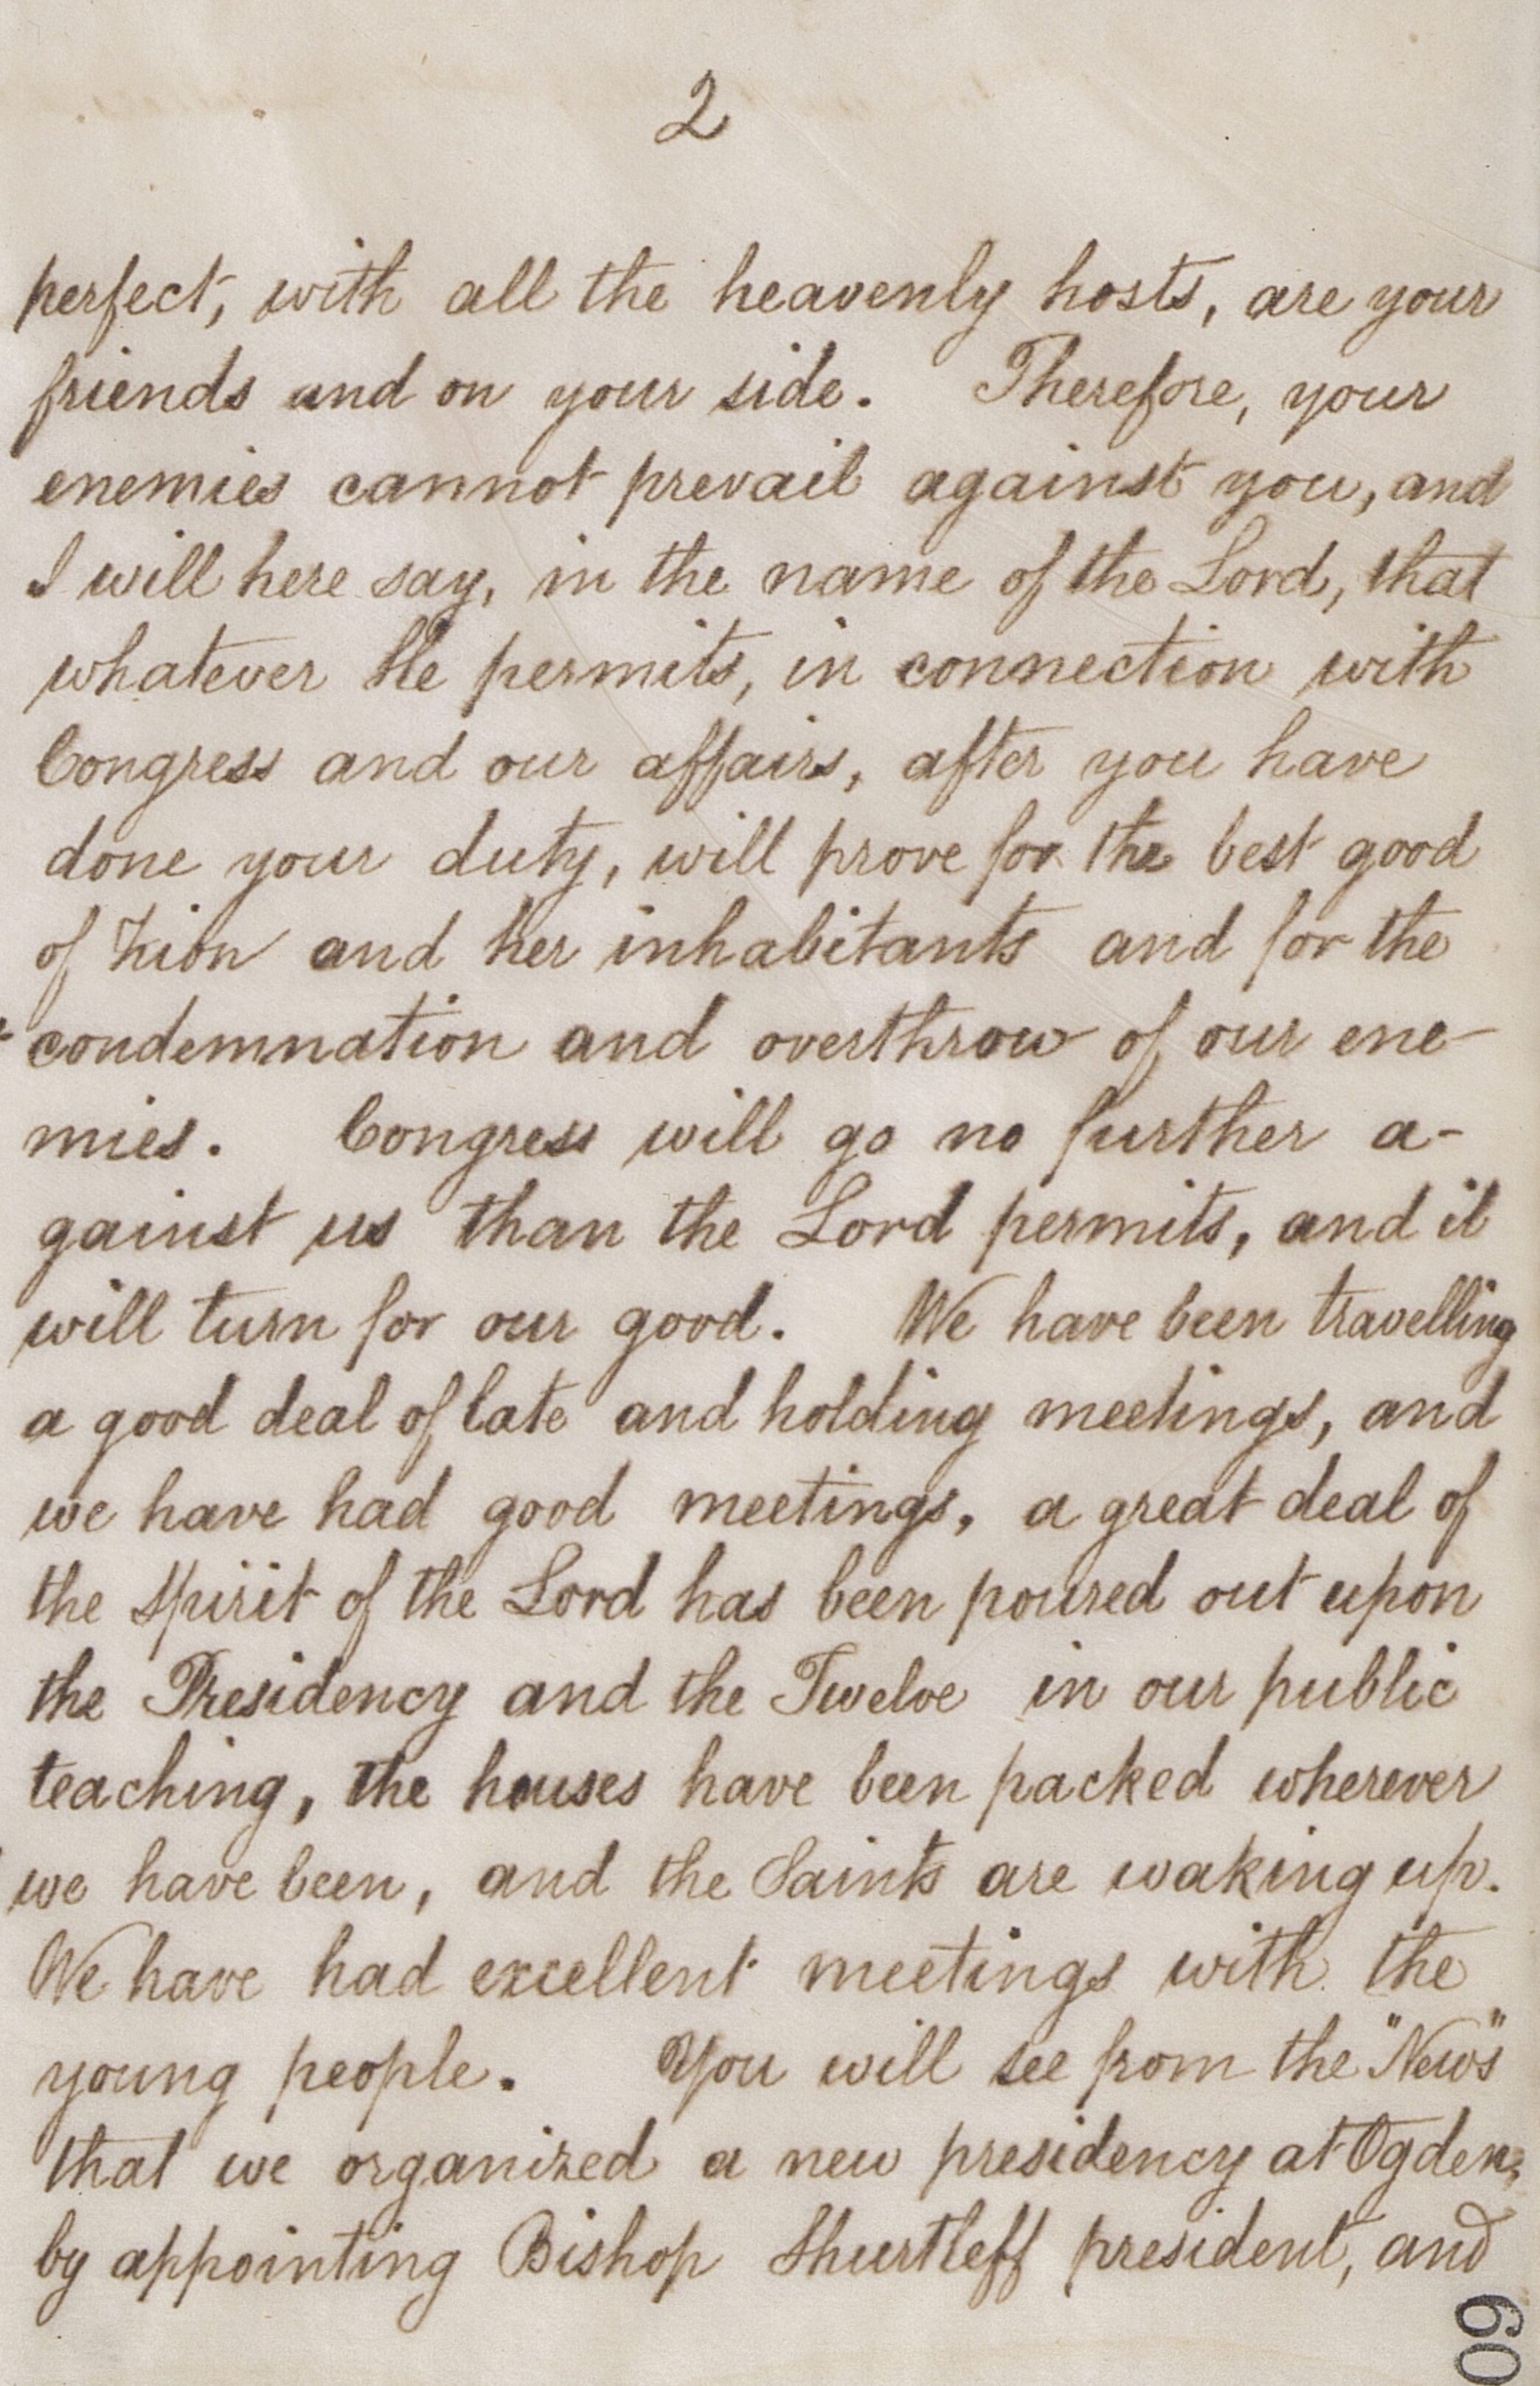 2
perfect, with all the heavenly hosts, are your
friends and on your side. Therefore, your
enemies cannot prevail against you, and
I will here say, in the name of the Lord, that
whatever He permits, in connection with
Congress and our affairs, after you have
done your duty, will prove for the best good
of Zion and her inhabitants and for the
condemnation and overthrow of our ene-
mies. Congress will go no further a-
gainst us than the Lord permits, and it
will turn for our good. We have been travelling
a good deal of late and holding meetings, and
we have had good meetings, a great deal of
the Spirit of the Lord has been poured out upon
the Presidency and the Twelve in our public
teaching, the houses have been packed wherever
we have been, and the Saints are waking up.
We have had excellent meetings with the
young people. You will see from the "News"
that we organized a new presidency at Ogden,
by appointing Bishop Shurtleff president, and
60